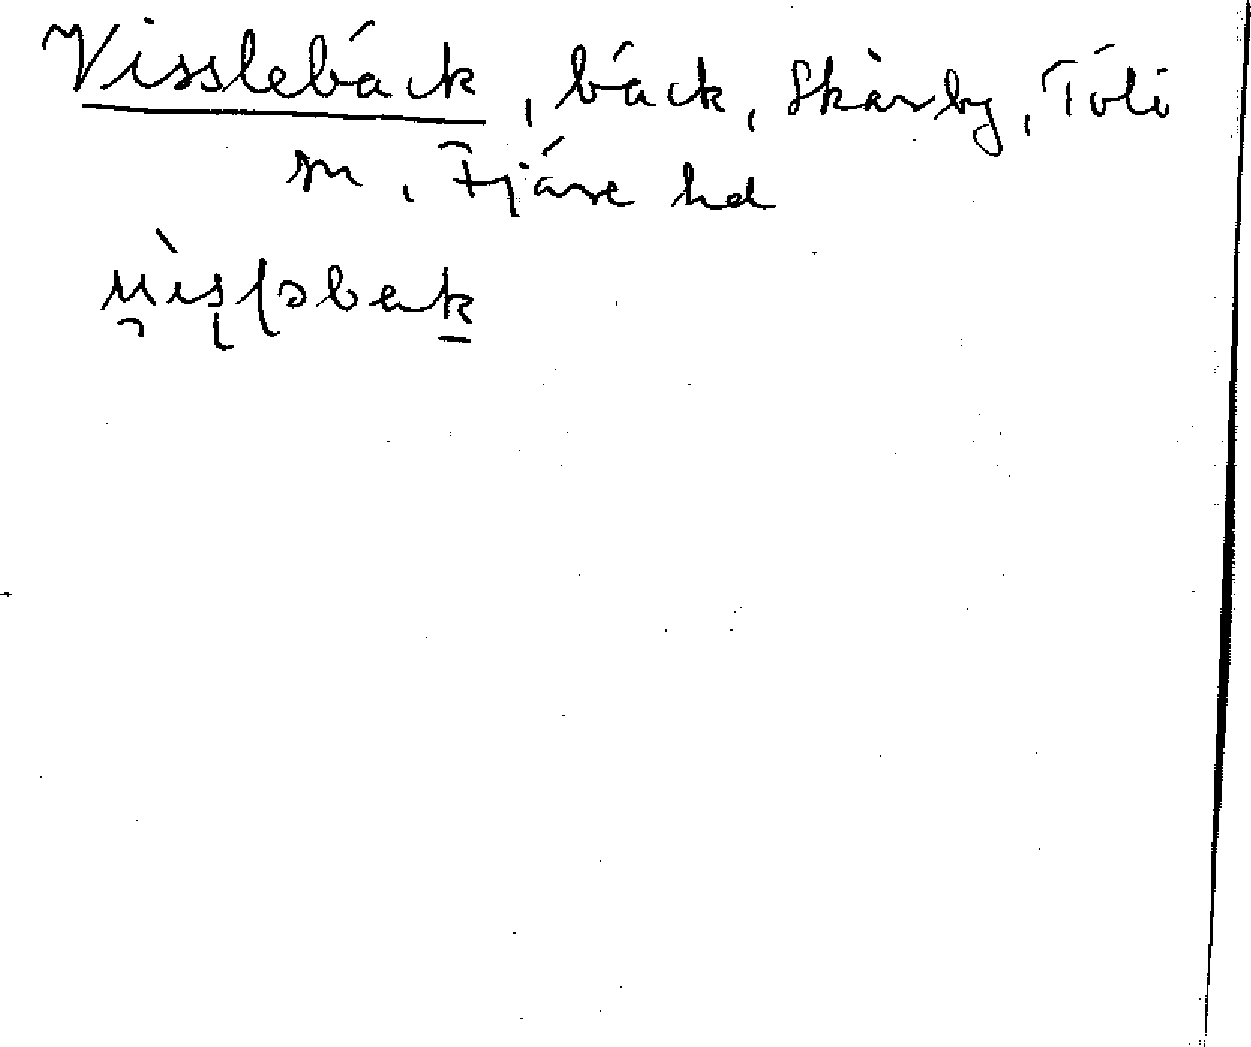 Visslebäck, bäck, Skårby, Tölö
sn, Fjäre hd